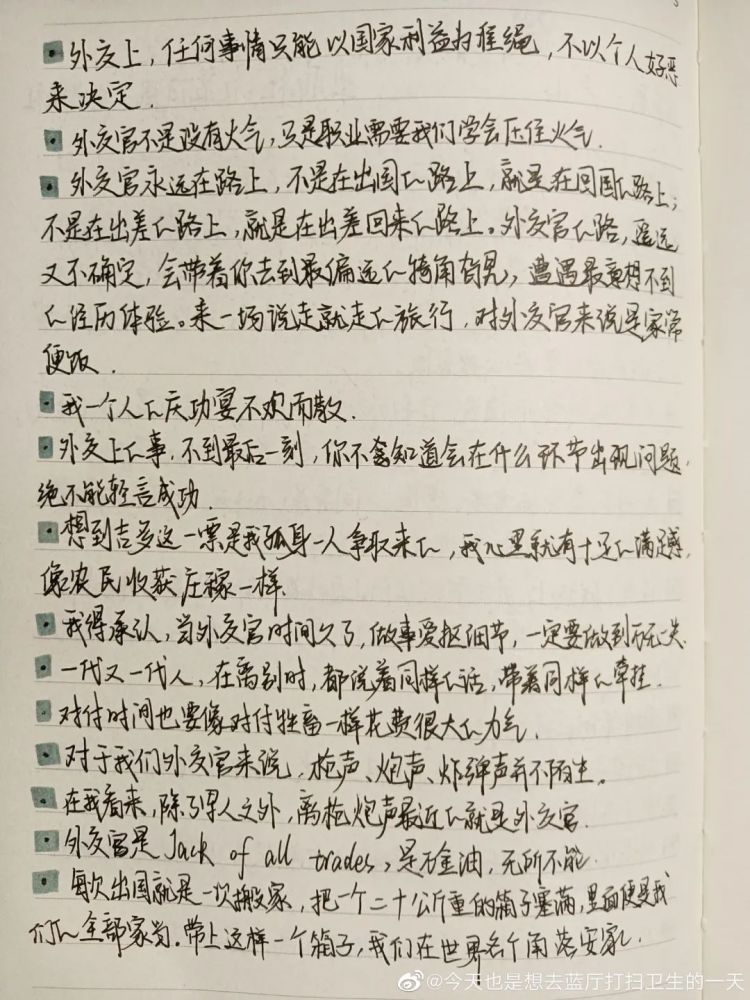 ▪外交上，任何事情只能以国家利益为准绳，不以个人好恶
来决定．
▪外交官不是没有火气，只是职业需要我们学会压住火气．
▪外交官永远在路上，不是在出国的路上，就是在回国的路上；
不是在出差的路上，就是在出差回来的路上。外交官的路，遥远
又不确定，会带着你去到最偏远的犄角旮旯，遭遇最意想不到
的经历体验。来一场说走就走的旅行，对外交官来说是家常
便饭．
▪我一个人的庆功宴不欢而散．
▪外交上的事，不到最后一刻，你不会知道会在什么环节出现问题，
绝不能轻言成功．
▪想到吉多这一票是我孤身一人争取来的，我心里就有十足的满足感，
像农民收获庄稼一样．
▪我得承认，当外交官时间久了，做事爱抠细节，一定要做到万无一失．
▪一代又一代人，在离别时，都说着同样的话，带着同样的牵挂．
▪对付时间也要像对付牲畜一样花费很大的力气．
▪对于我们外交官来说，枪声、炮声、炸弹声并不陌生．
▪在我看来，除了军人之外，离枪炮声最近的就是外交官．
▪外交官是Jack of all trades，是万金油，无所不能．
▪每次出国就是一次搬家，把一个二十公斤重的箱子塞满，里面便是我
们的全部家当．带上这样一个箱子，我们在世界各个角落安家．
@今天也是想去蓝厅打扫卫生的一天